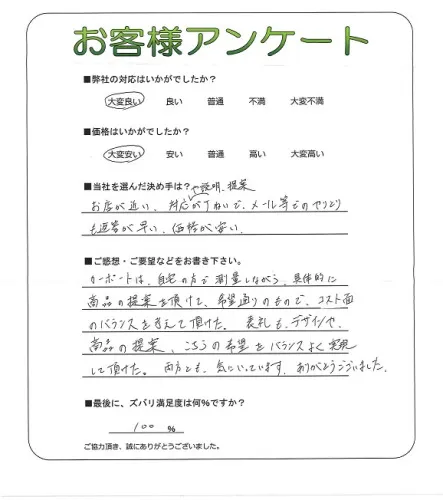 お客様アンケート
■弊社の対応はいかがでしたか？
大変良い 良い 普通 不満 大変不満
■価格はいかがでしたか？
大変安い 安い 普通 高い 大変高い
■当社を選んだ決め手は？
や説明、提案
お店が近い、対応がていねいで、メール等でのやりとり
も返答が早い、価格が安い
■ご感想・ご要望などをお書き下さい。
カーポートは、自宅の方で測量しながら、具体的に
商品の提案を頂けて、希望通りのもので、コスト面
のバランスを考えて頂けた。 表札も、デザインや、
商品の提案、こちらの希望をバランスよく実現
して頂けた。 両方とも、気にいっています、ありがとうございました。
■最後に、ズバリ満足度は何%ですか？
100 %
ご協力頂き、誠にありがとうございました。